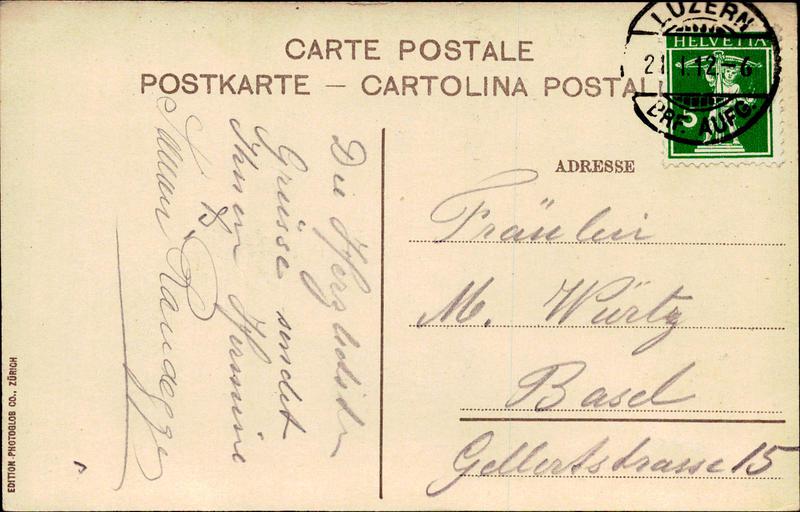 CARTE POSTALE
POSTKARTE — CARTOLINA POSTALE
LUZERN
21.1.12-6
BRF. AUFG.
HELVETIA
5
ADRESSE
Fräulein
M. Würtz
Basel
Gellertstrasse 15
Die
Grüsse sendet
Ihnen Hermine
EDITION-PHOTOGLOB CO., ZÜRICH